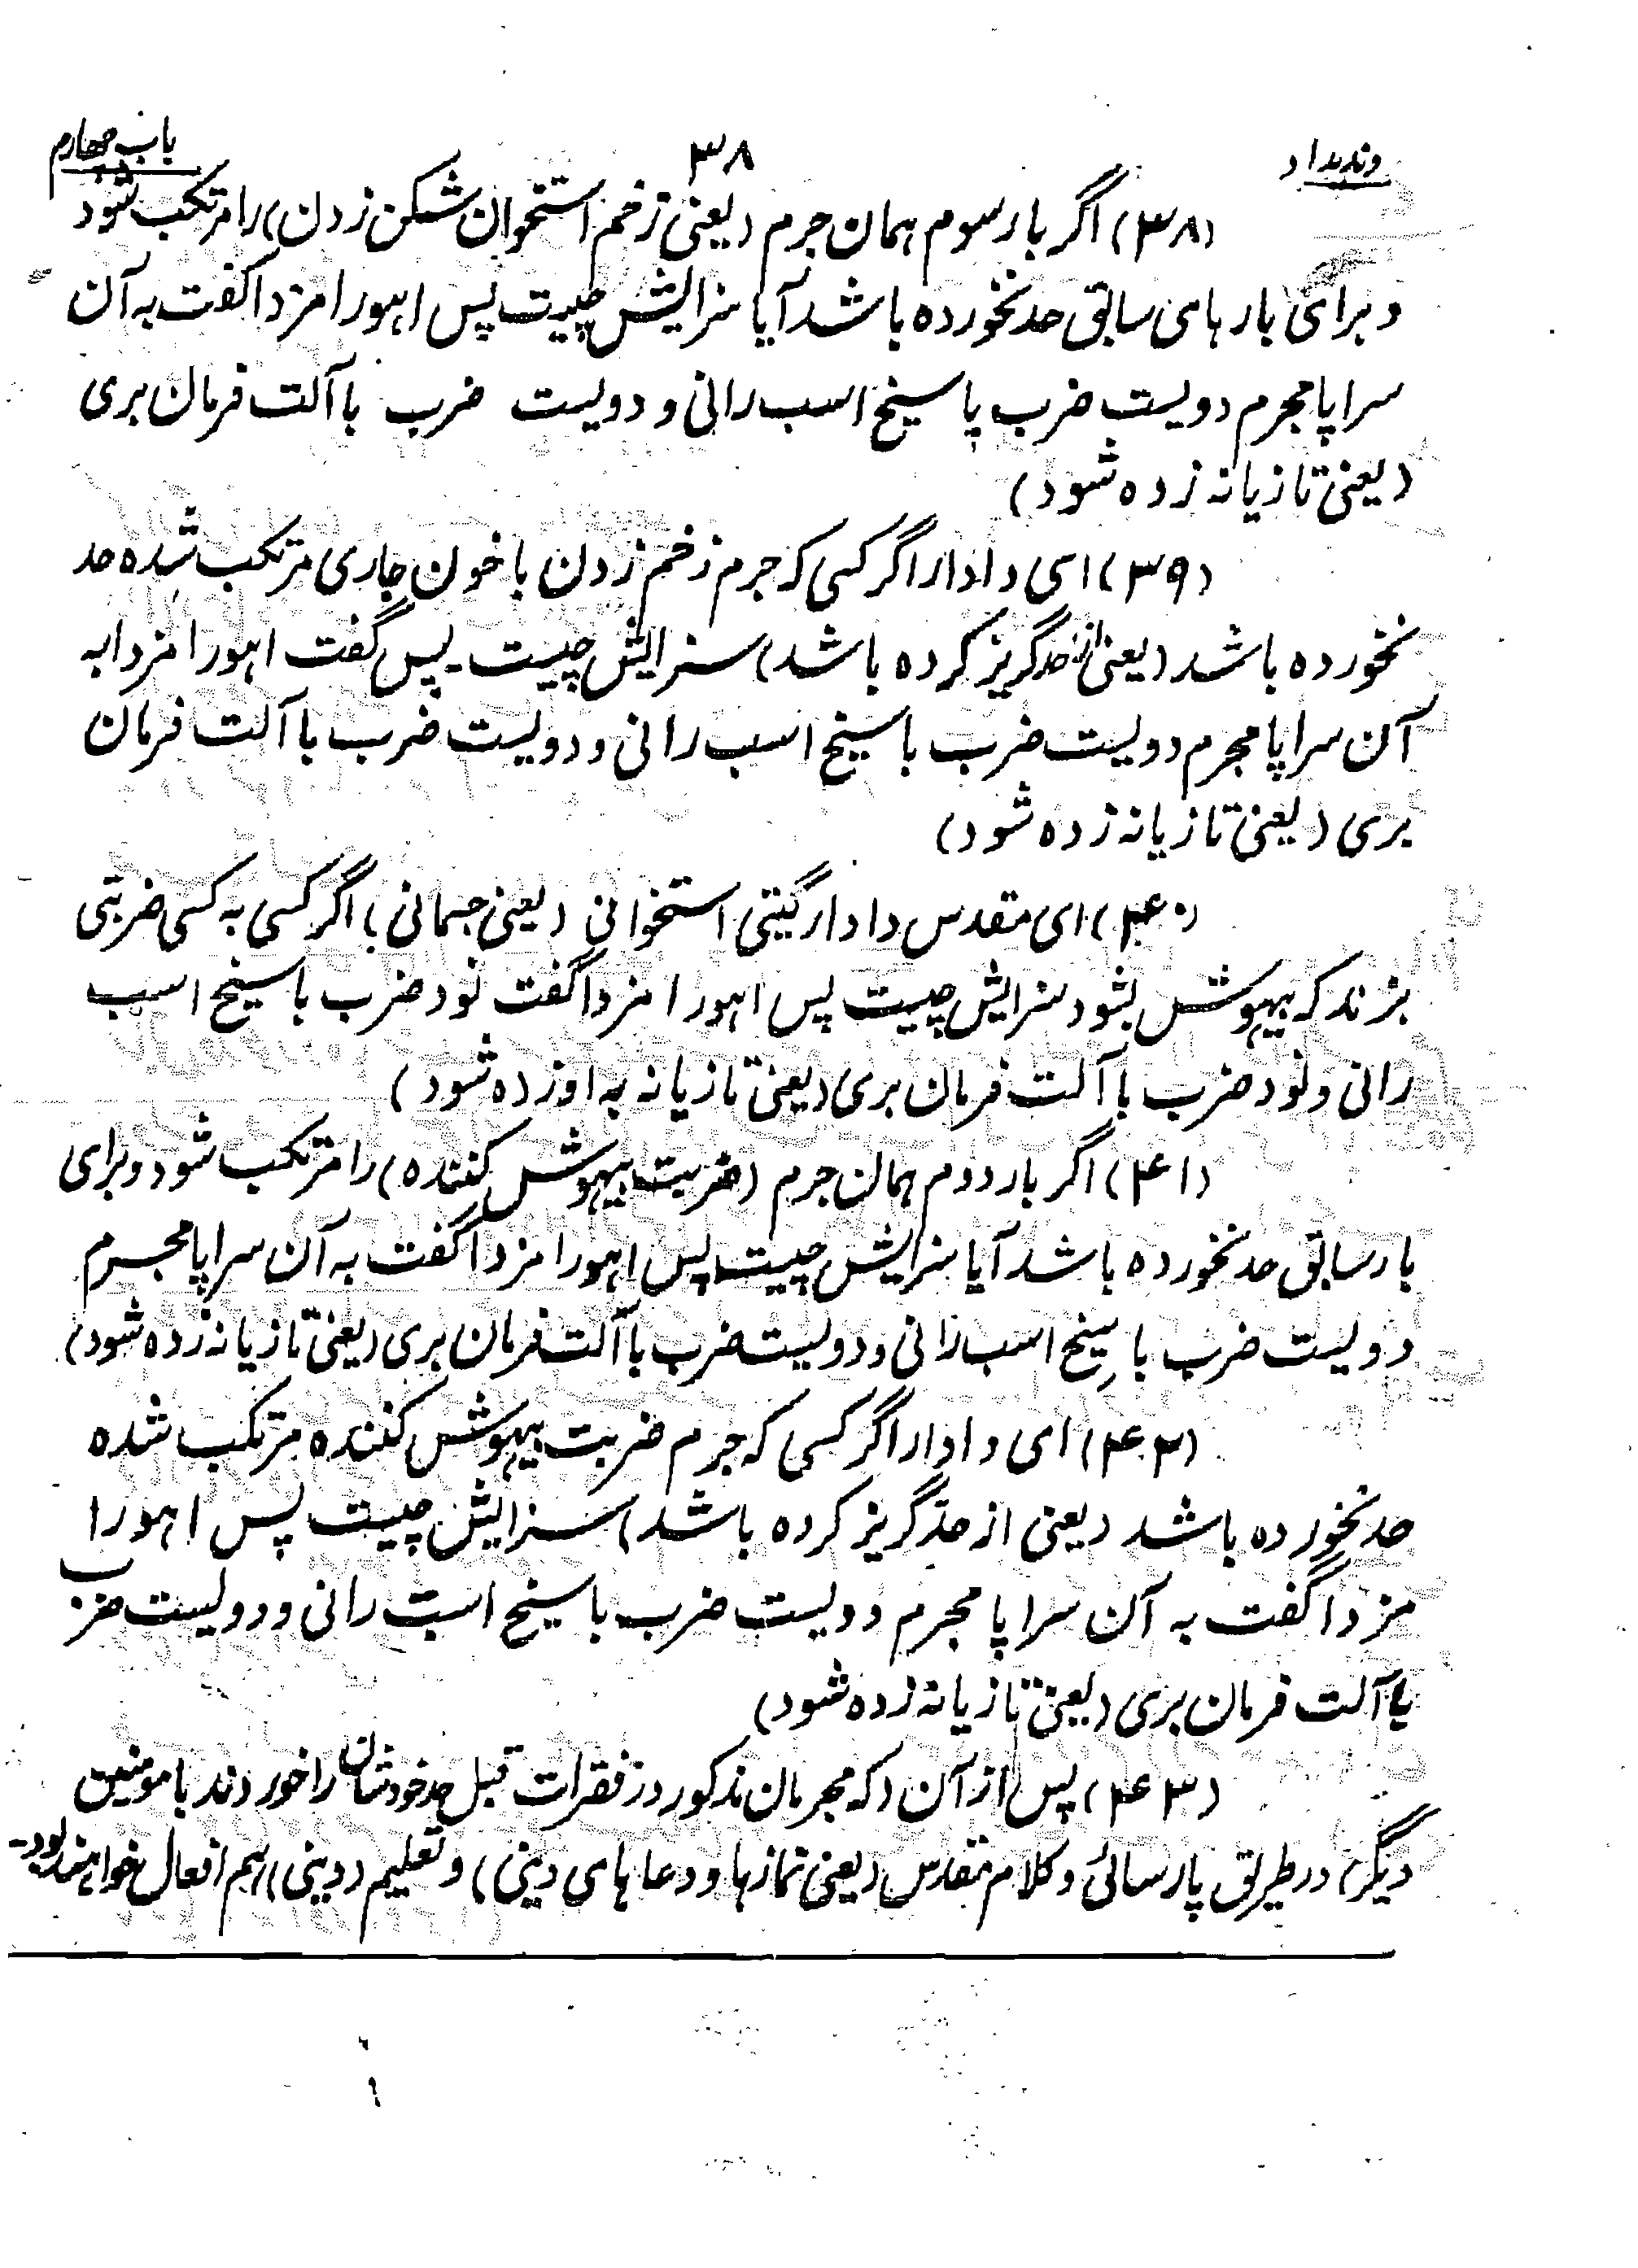 وندیداد
۳۸
باب چهارم
(۳۸) اگر بار سوم همان جرم (یعنی زخم استخوان شکن زدن) را مرتکب شود
و برای بارهای سابق حد نخورده باشد آیا سزایش چیست پس اهورا مزدا گفت به آن
سراپا مجرم دویست ضرب با سیخ اسب رانی و دویست ضرب با آلت فرمان بری
(یعنی تازیانه زده شود)
(۳۹) ای دادار اگر کسی که جرم زخم زدن با خون جاری مرتکب شده حد
نخورده باشد (یعنی از حد گریز کرده باشد) سزایش چیست پس گفت اهورا مزدا به
آن سراپا مجرم دویست ضرب با سیخ اسب رانی و دویست ضرب با آلت فرمان
بری (یعنی تازیانه زده شود)
(۴۰) ای مقدس دادار گیتی استخوانی (یعنی جسمانی) اگر کسی به کسی ضربتی
بزند که بیهوش بشود سزایش چیست پس اهورا مزدا گفت نود ضرب با سیخ اسب
رانی و نود ضرب با آلت فرمان بری (یعنی تازیانه به او زده شود)
(۴۱) اگر بار دوم همان جرم (ضربت بیهوش کننده) را مرتکب شود و برای
بار سابق حد نخورده باشد آیا سزایش چیست پس اهورا مزدا گفت به آن سراپا مجرم
دویست ضرب با سیخ اسب رانی و دویست ضرب با آلت فرمان بری (یعنی تازیانه زده شود)
(۴۲) ای دادار اگر کسی که جرم ضربت بیهوش کننده مرتکب شده
حد نخورده باشد (یعنی از حدّ گریز کرده باشد) سزایش چیست پس اهورا
مزدا گفت به آن سراپا مجرم دویست ضرب با سیخ اسب رانی و دویست ضرب
با آلت فرمان بری (یعنی تازیانه زده شود)
(۴۳) پس از آن (که مجرمان مذکور در فقرات قبل حد خودشان را خوردند با مومنین
دیگر) در طریق پارسائی و کلام مقدس (یعنی نمازها و دعاهای دینی) و تعلیم (دینی) هم افعال خواهند بود-